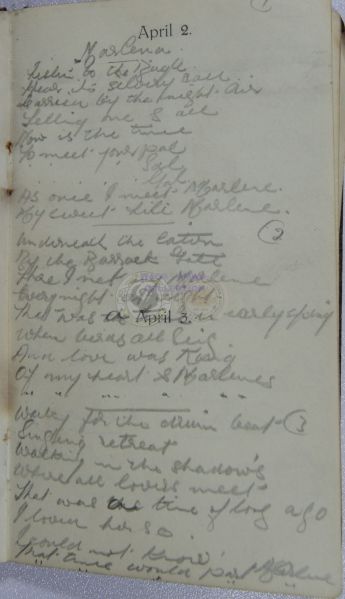 1
April 2.
Marlena.
Listen to the Bugle
Hear its silvery call
Carried by the night air
Telling one & all
Now is the time
To meet your pal
As once I met Marlene.
My sweet Lili Marlene.
2
Underneath the
By the Barrack Gate
There I met my Marlene
Every night
That was a in early spring
April 3.
When birds all sing
And love was King
Of my heart & Marlenes
" " " " "
Waiting for the drum beat 3
Singing retreat
Walking in the shadows
Where all lovers meet
That was the time of long ago
I loved her so
I could not know
That time would part Marlene